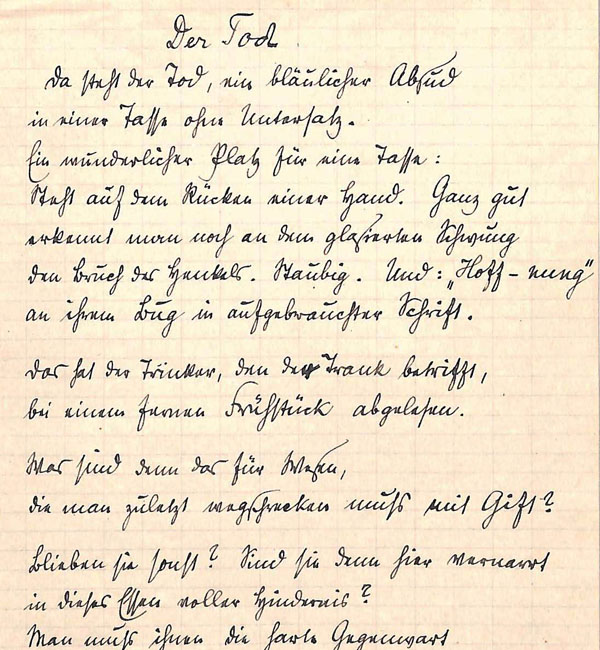 Der Tod
Da steht der Tod, ein bläulicher Absud
in einer Tasse ohne Untersatz.
Ein wunderlicher Platz für eine Tasse:
Steht auf dem Rücken einer Hand. Ganz gut
erkennt man noch an dem glasierten Schwung
den Bruch des Henkels. Staubig. Und: „Hoff-nung"
an ihrem Bug in aufgebrauchter Schrift.
Das hat der Trinker, den der Trank betrifft,
bei einem fernen Frühstück abgelesen.
Was sind denn das für Wesen,
die man zuletzt wegschrecken muß mit Gift?
Blieben sie sonst? Sind sie denn hier vernarrt
in dieses Essen voller Hindernis?
Man muß ihnen die harte Gegenwart